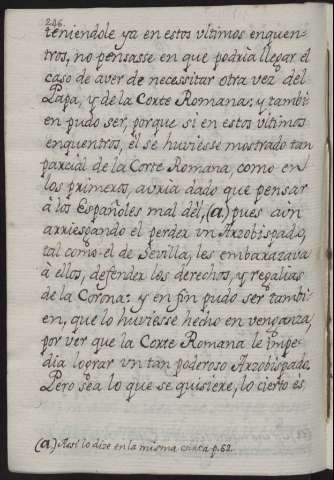 206.
teniendole ya en estos vltimos enquen-
tros, no pensasse en que podria llegar el
caso de aver de necessitar otra vez del
Papa, y de la Corte Romana: y tambi-
en pudo ser, porque si en estos vltimos
enquentros, él se huviesse mostrado tan
parcial de la Corte Romana, como en
los primeros, avria dado que pensar
á los Españoles mal dél, (a.) pues aùn
arriesgando el perder vn Arzobispado,
tal como el de Sevilla, les embarazava
à ellos, defender los derechos, y regalias
de la Corona: y en fin pudo ser tambi-
en, que lo huviesse hecho en venganza,
por ver que la Corte Romana le impe-
dia lograr vn tan poderoso Arzobispado.
Pero sea lo que se quisiere, lo cierto es,
(a.) Assi lo dize en la misma carta p. 62.